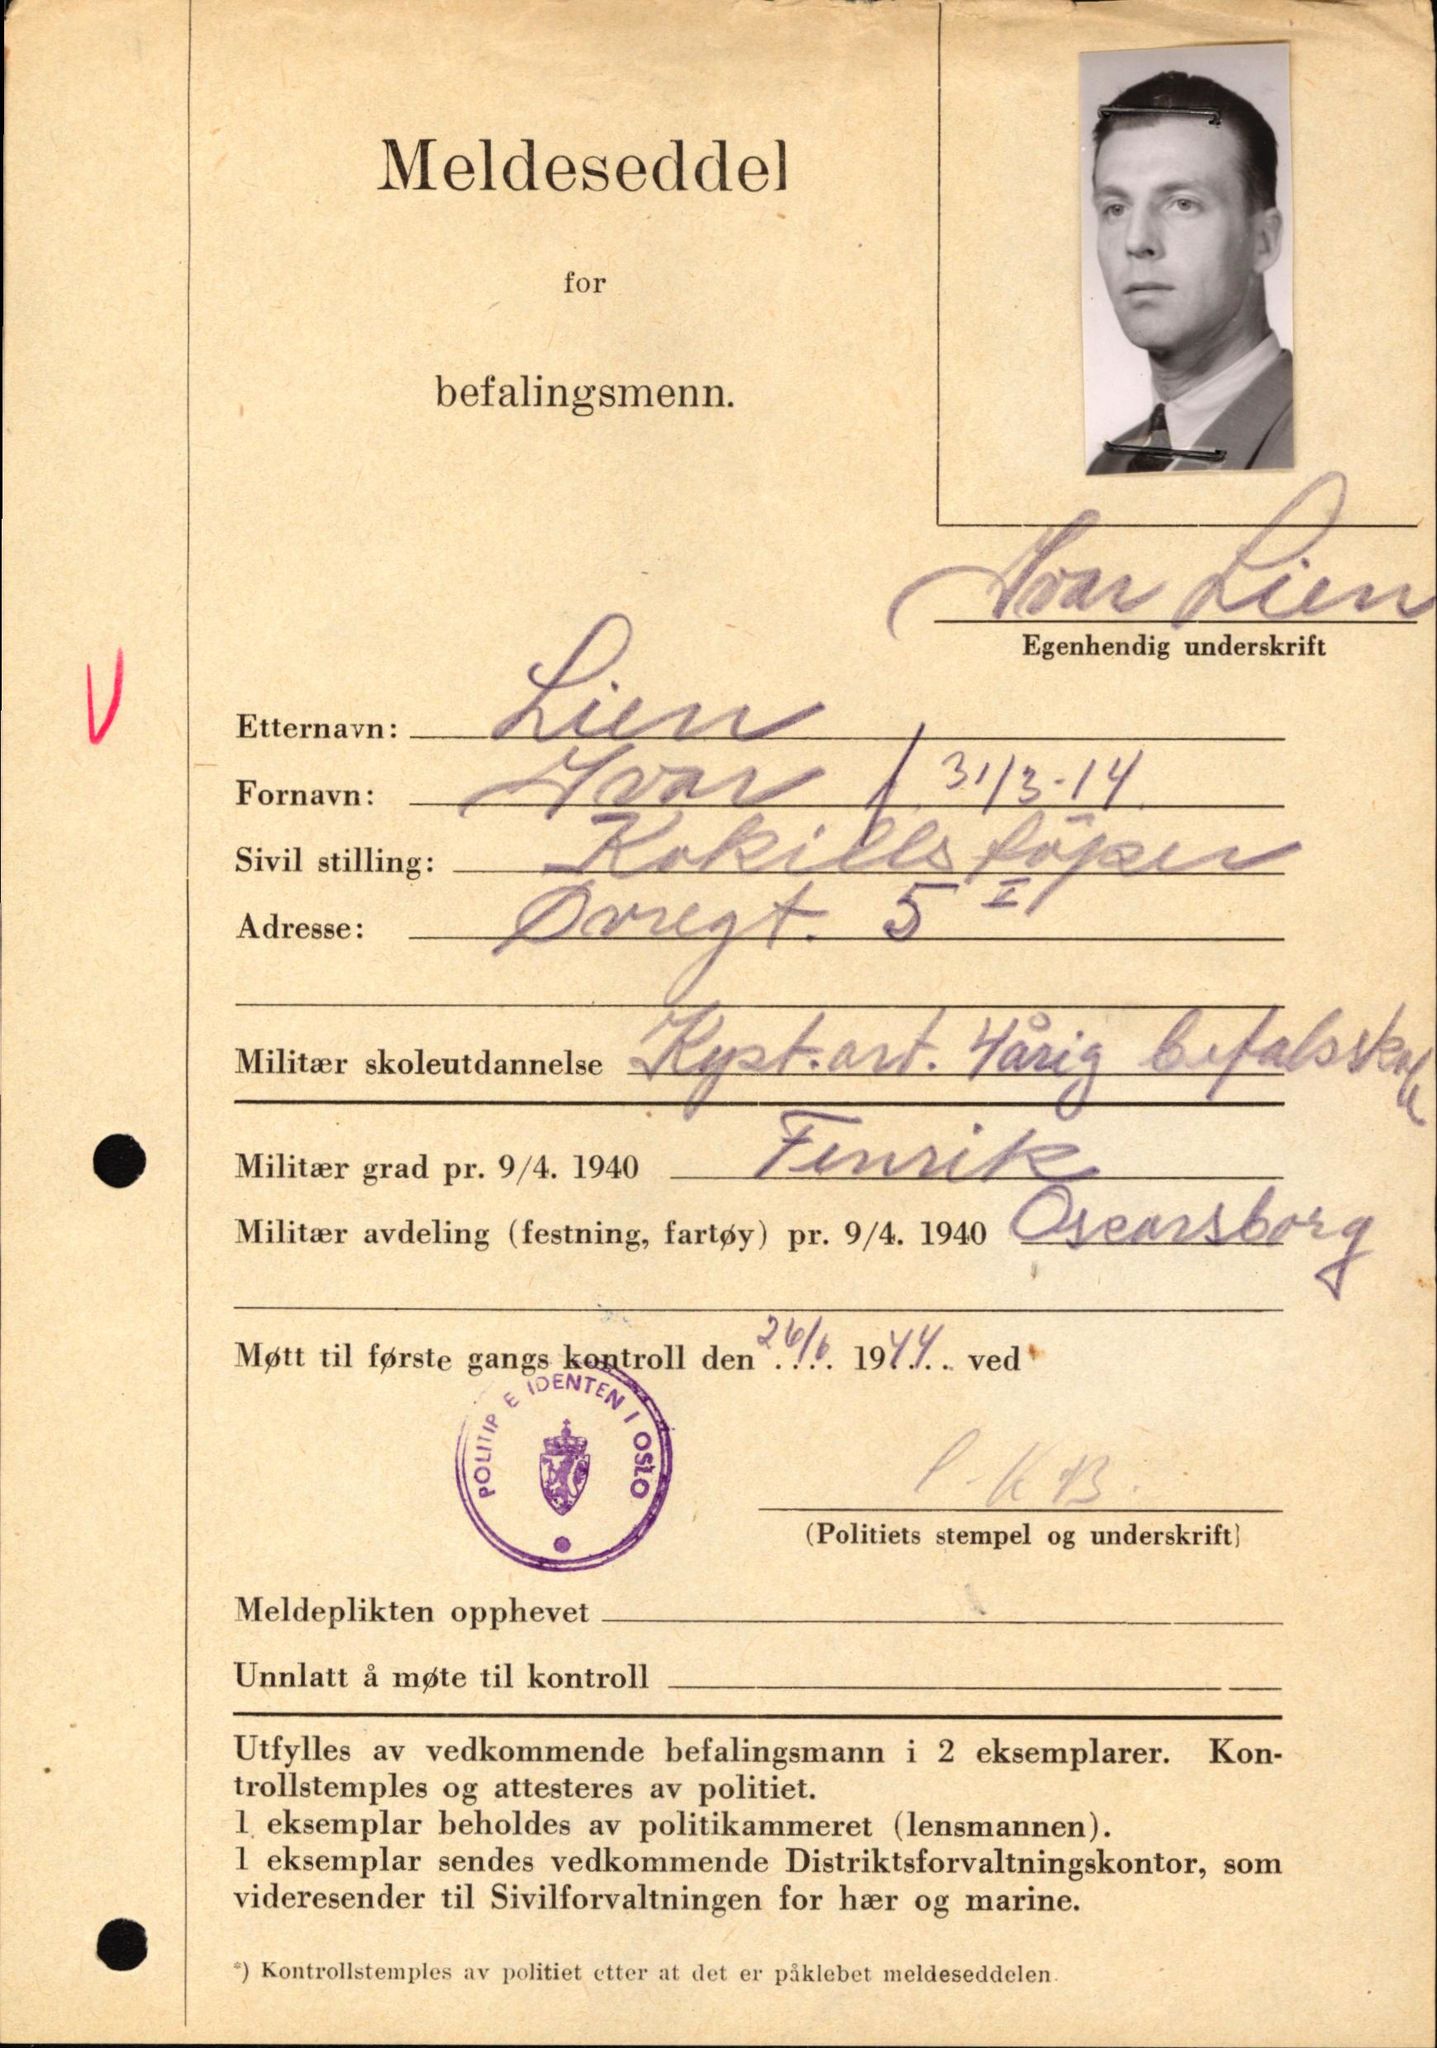 Meldeseddel
for
befalingsmenn.
Ivar Lien
Egenhendig underskrift
V
Etternavn: Lien
Fornavn: Ivar / 31/3-14
Sivil stilling: Kokillstöper
Adresse: Øvregt. 5 I
Militær skoleutdannelse Kyst.art. 4årig befalsskole
Militær grad pr. 9/4. 1940 Fenrik
Militær avdeling (festning, fartøy) pr. 9/4. 1940 Oscarsborg
Møtt til første gangs kontroll den 26/6 1944 ved
POLITIP E IDENTEN I OSLO
(Politiets stempel og underskrift)
Meldeplikten opphevet
Unnlatt å møte til kontroll
Utfylles av vedkommende befalingsmann i 2 eksemplarer. Kon-
trollstemples og attesteres av politiet.
1 eksemplar beholdes av politikammeret (lensmannen).
1 eksemplar sendes vedkommende Distriktsforvaltningskontor, som
videresender til Sivilforvaltningen for hær og marine.
*) Kontrollstemples av politiet etter at det er påklebet meldeseddelen.